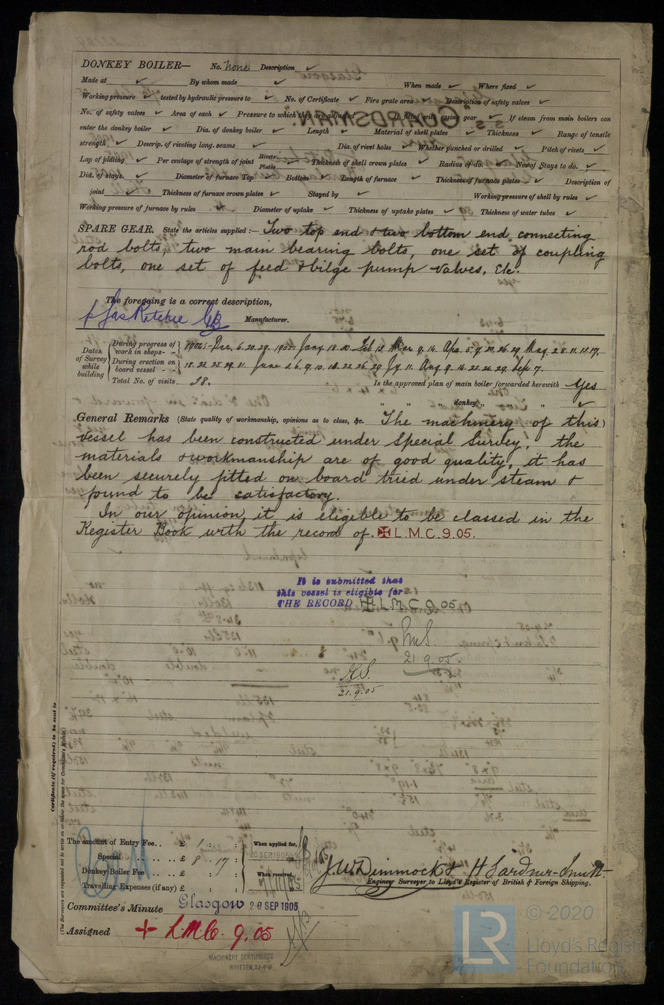 DONKEY BOILER— No. None Description ✓
Made at ✓ By whom made ✓ When made ✓ Where fixed ✓
Working pressure ✓ tested by hydraulic pressure to ✓ No. of Certificate ✓ Fire grate area ✓ Description of safety valves ✓
No. of safety valves ✓ Area of each ✓ Pressure to which they are gear ✓ If steam from main boilers can
enter the donkey boiler ✓ Dia. of donkey boiler ✓ Length ✓ Material of shell plates ✓ Thickness ✓ Range of tensile
strength ✓ Descrip. of riveting long. seams ✓ Dia. of rivet holes ✓ Whether punched or drilled ✓ Pitch of rivets ✓
Lap of plating ✓ Per centage of strength of joint Rivets Plates Thickness of shell crown plates ✓ Radius of do. ✓ No. of Stays to do. ✓
Dia. of stays ✓ Diameter of furnace Top Bottom Length of furnace ✓ Thickness of furnace plates ✓ Description of
joint ✓ Thickness of furnace crown plates ✓ Stayed by ✓ Working pressure of shell by rules ✓
Working pressure of furnace by rules ✓ Diameter of uptake ✓ Thickness of uptake plates ✓ Thickness of water tubes ✓
SPARE GEAR. State the articles supplied:— Two top end & two bottom end connecting
rod bolts, two main bearing bolts, one set of coupling
bolts, one set of feed & bilge pump valves, etc.
The foregoing is a correct description,
p Jas Ritchie Manufacturer.
Dates of Survey while building
During progress of work in shops - -
During erection on board vessel - - -
Total No. of visits 38. Is the approved plan of main boiler forwarded herewith Yes
" " " donkey " " " ✓
General Remarks (State quality of workmanship, opinions as to class, &c. The machinery of this
vessel has been constructed under Special Survey, the
materials & workmanship are of good quality, it has
been securely fitted on board tried under steam &
found to be satisfactory.
In our opinion it is eligible to be classed in the
Register Book with the record of. ✠ L.M.C. 9.05.
It is submitted that
this vessel is eligible for
THE RECORD ✠ L.M.C. 9.05
21.9.05.
21.9.05
Certificate (if required) to be sent to
(The Surveyors are requested not to write on or below the space for Committee's Minute.)
The amount of Entry Fee . . £ 1 : :
Special . . . £ 8 : 17 :
Donkey Boiler Fee . . . £ : :
Travelling Expenses (if any) £ : :
When applied for,
When received,
J. W. Dimmock & H Gardner-Smith
Engineer Surveyor to Lloyd's Register of British & Foreign Shipping.
Committee's Minute Glasgow 20 SEP 1905
Assigned + L.M.C. 9.05
MACHINERY CERTIFICATE
WRITTEN
© 2020
LR
Lloyd's Register
Foundation